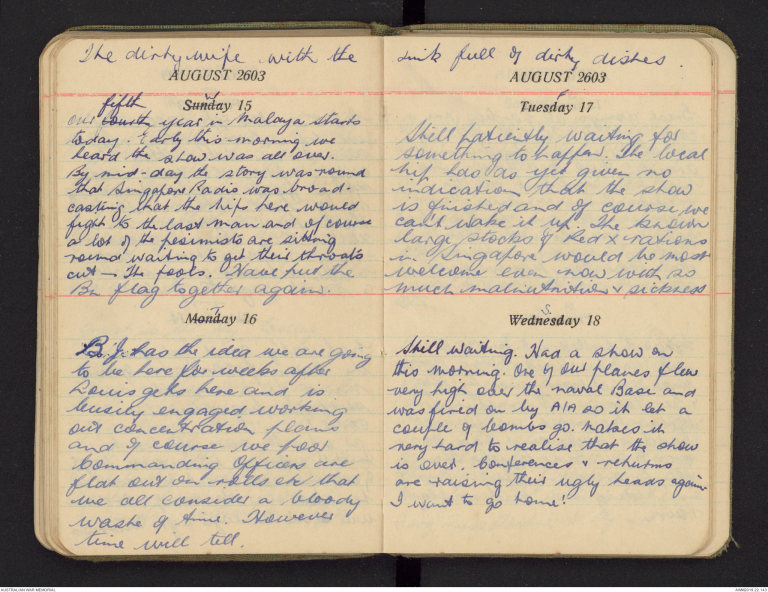 The dirty wife with the
AUGUST 2603
Sunday 15
fifth
Our fourth year in Malaya starts
today. Early this morning we
heard the show was all over.
By mid-day the story was round
that Singapore Radio was broad-
casting that the nips here would
fight to the last man and of course
a lot of the pesimists are sitting
round waiting to get their throats
cut – The fools. Have put the
Bn flag together again.
Monday 16
B.J. has the idea we are going
to be here for weeks after
Louis gets here and is
busily engaged working
out concentration plans
and of course we poor
Commanding Officers are
flat out on rolls etc that
we all consider a bloody
waste of time. However
time will tell.
sink full of dirty dishes.
AUGUST 2603
Tuesday 17
Still patiently waiting for
something to happen. The local
nip has as yet given no
indication that the show
is finished and of course we
cant wake it up. The known
large stocks of Red X rations
in Singapore would be most
welcome even now with so
much malnutrition & sickness
Wednesday 18
S.
Still waiting. Had a show on
this morning. One of our planes flew
very high over the naval Base and
was fired on by A/A so it let a
couple of bombs go. Makes it
very hard to realise that the show
is over. Conferences & returns
are raising their ugly heads again
I want to go home!
AUSTRALIAN WAR MEMORIAL
AWM2019.22.143